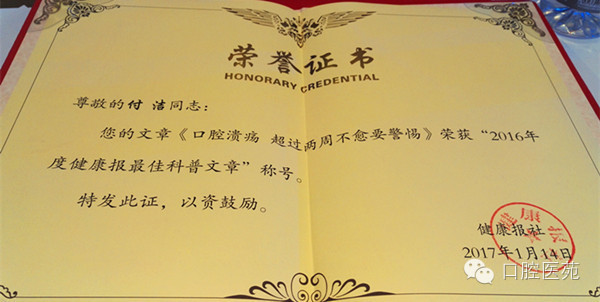 荣誉证书
HONORARY CREDENTIAL
尊敬的付 洁同志：
您的文章《口腔溃疡 超过两周不愈要警惕》荣获“2016年
度健康报最佳科普文章”称号。
特发此证，以资鼓励。
健康报社
2017年1月14日
口腔医苑